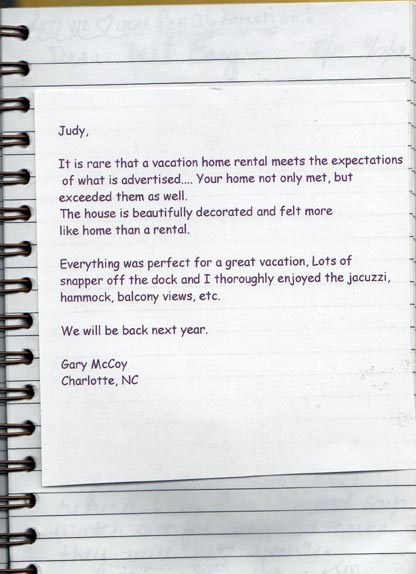 Judy,
It is rare that a vacation home rental meets the expectations
of what is advertised.... Your home not only met, but
exceeded them as well.
The house is beautifully decorated and felt more
like home than a rental.
Everything was perfect for a great vacation, Lots of
snapper off the dock and I thoroughly enjoyed the jacuzzi,
hammock, balcony views, etc.
We will be back next year.
Gary McCoy
Charlotte, NC